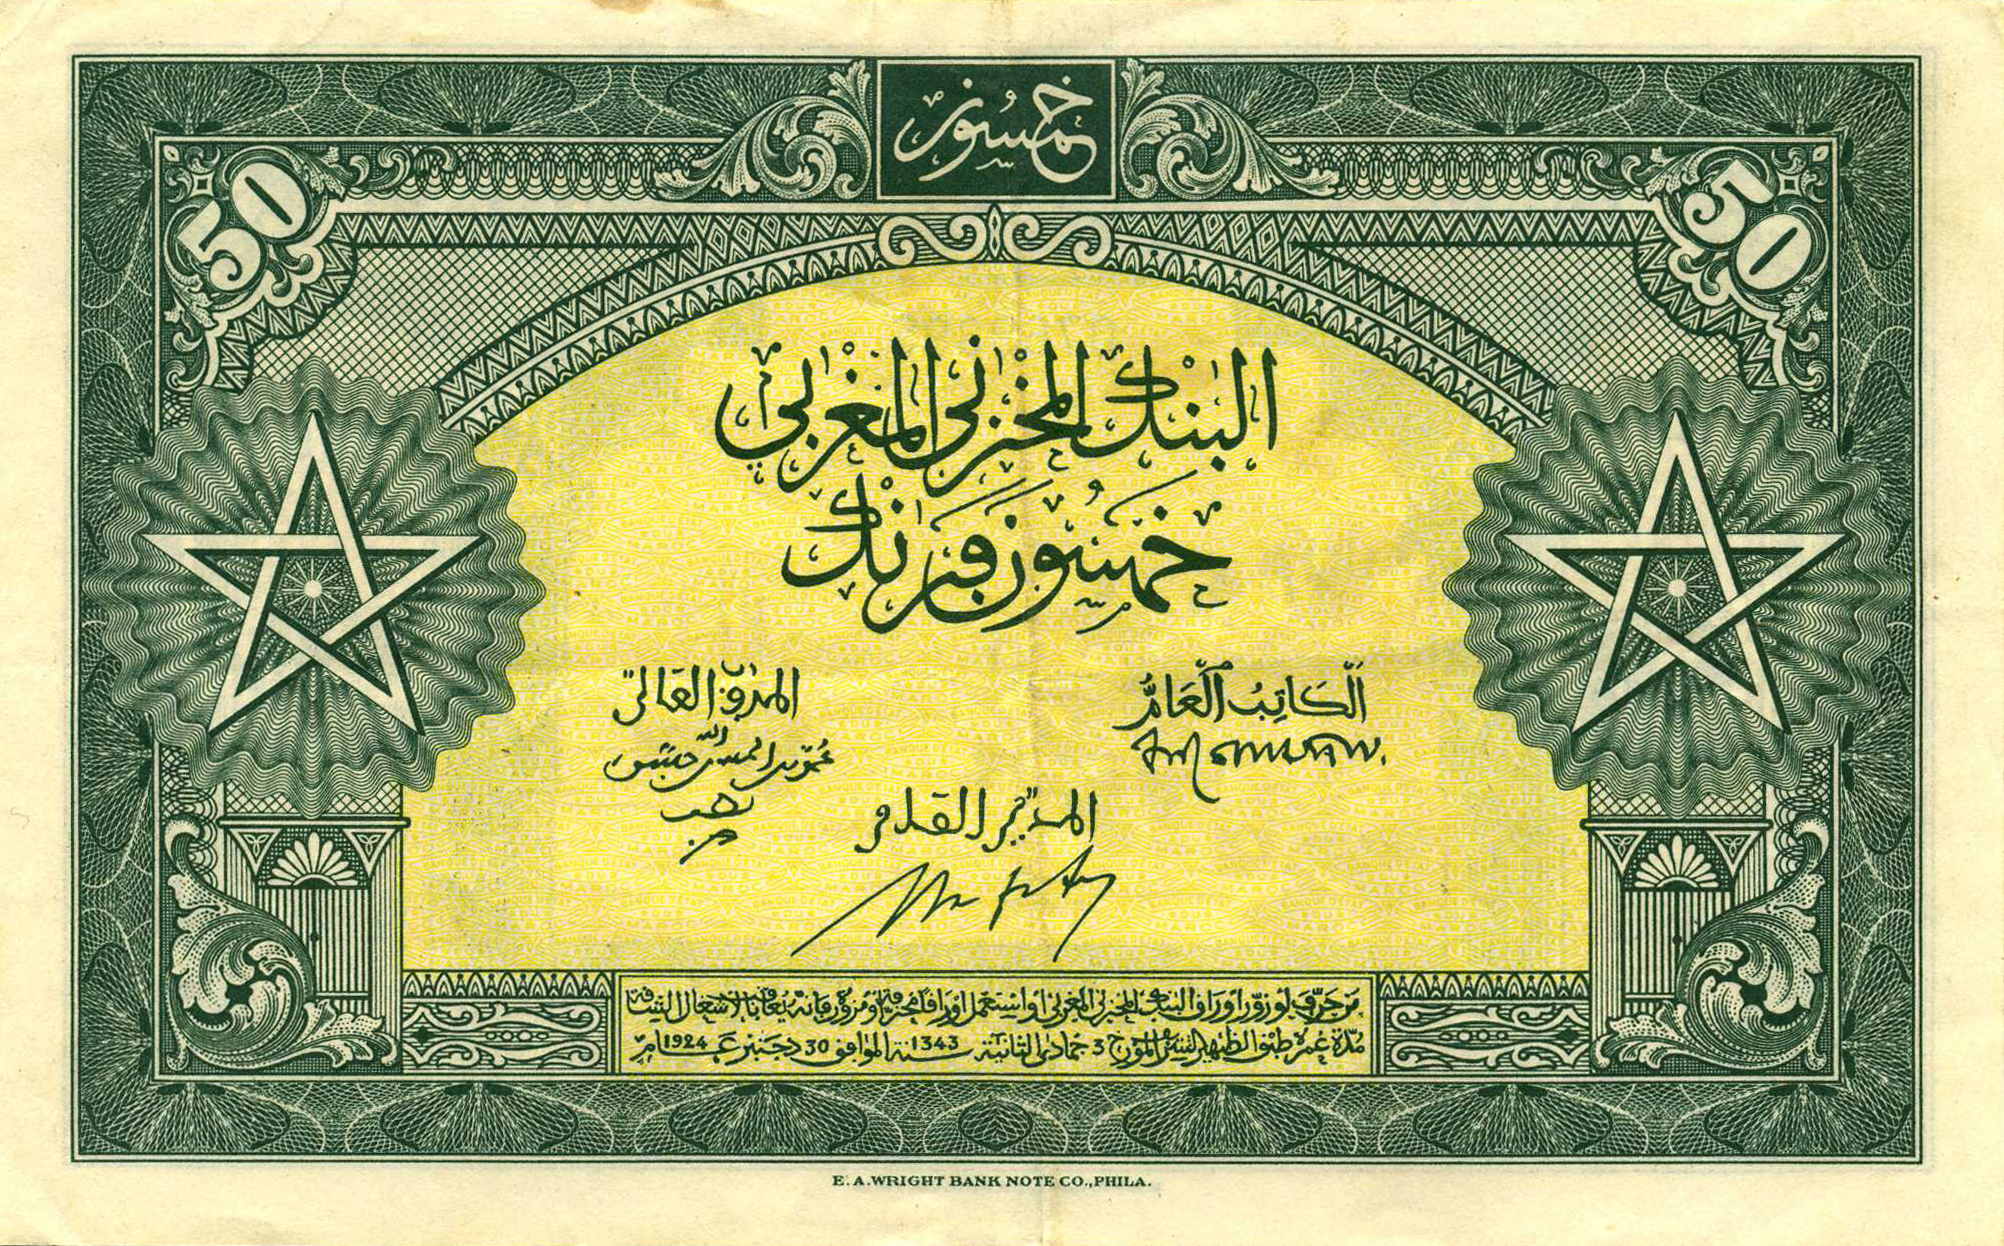 خمسون
50
50
البنك المخزني المغربي
خمسون فرنك
الكَاتِبُ الْعَامُّ
المندوب العالي
المدير القدم
من حرّف أو زوّر أوراق البنك المخزني المغربي أو استعمل أوراقا محرفة أو مزورة فإنه يعاقب بالأشغال الشاقة
مدّة عمره طبق الظهير الشريف المؤرخ 3 جمادى الثانية سنة 1343 الموافق 30 دجنبر عام 1924
E. A. WRIGHT BANK NOTE CO., PHILA.